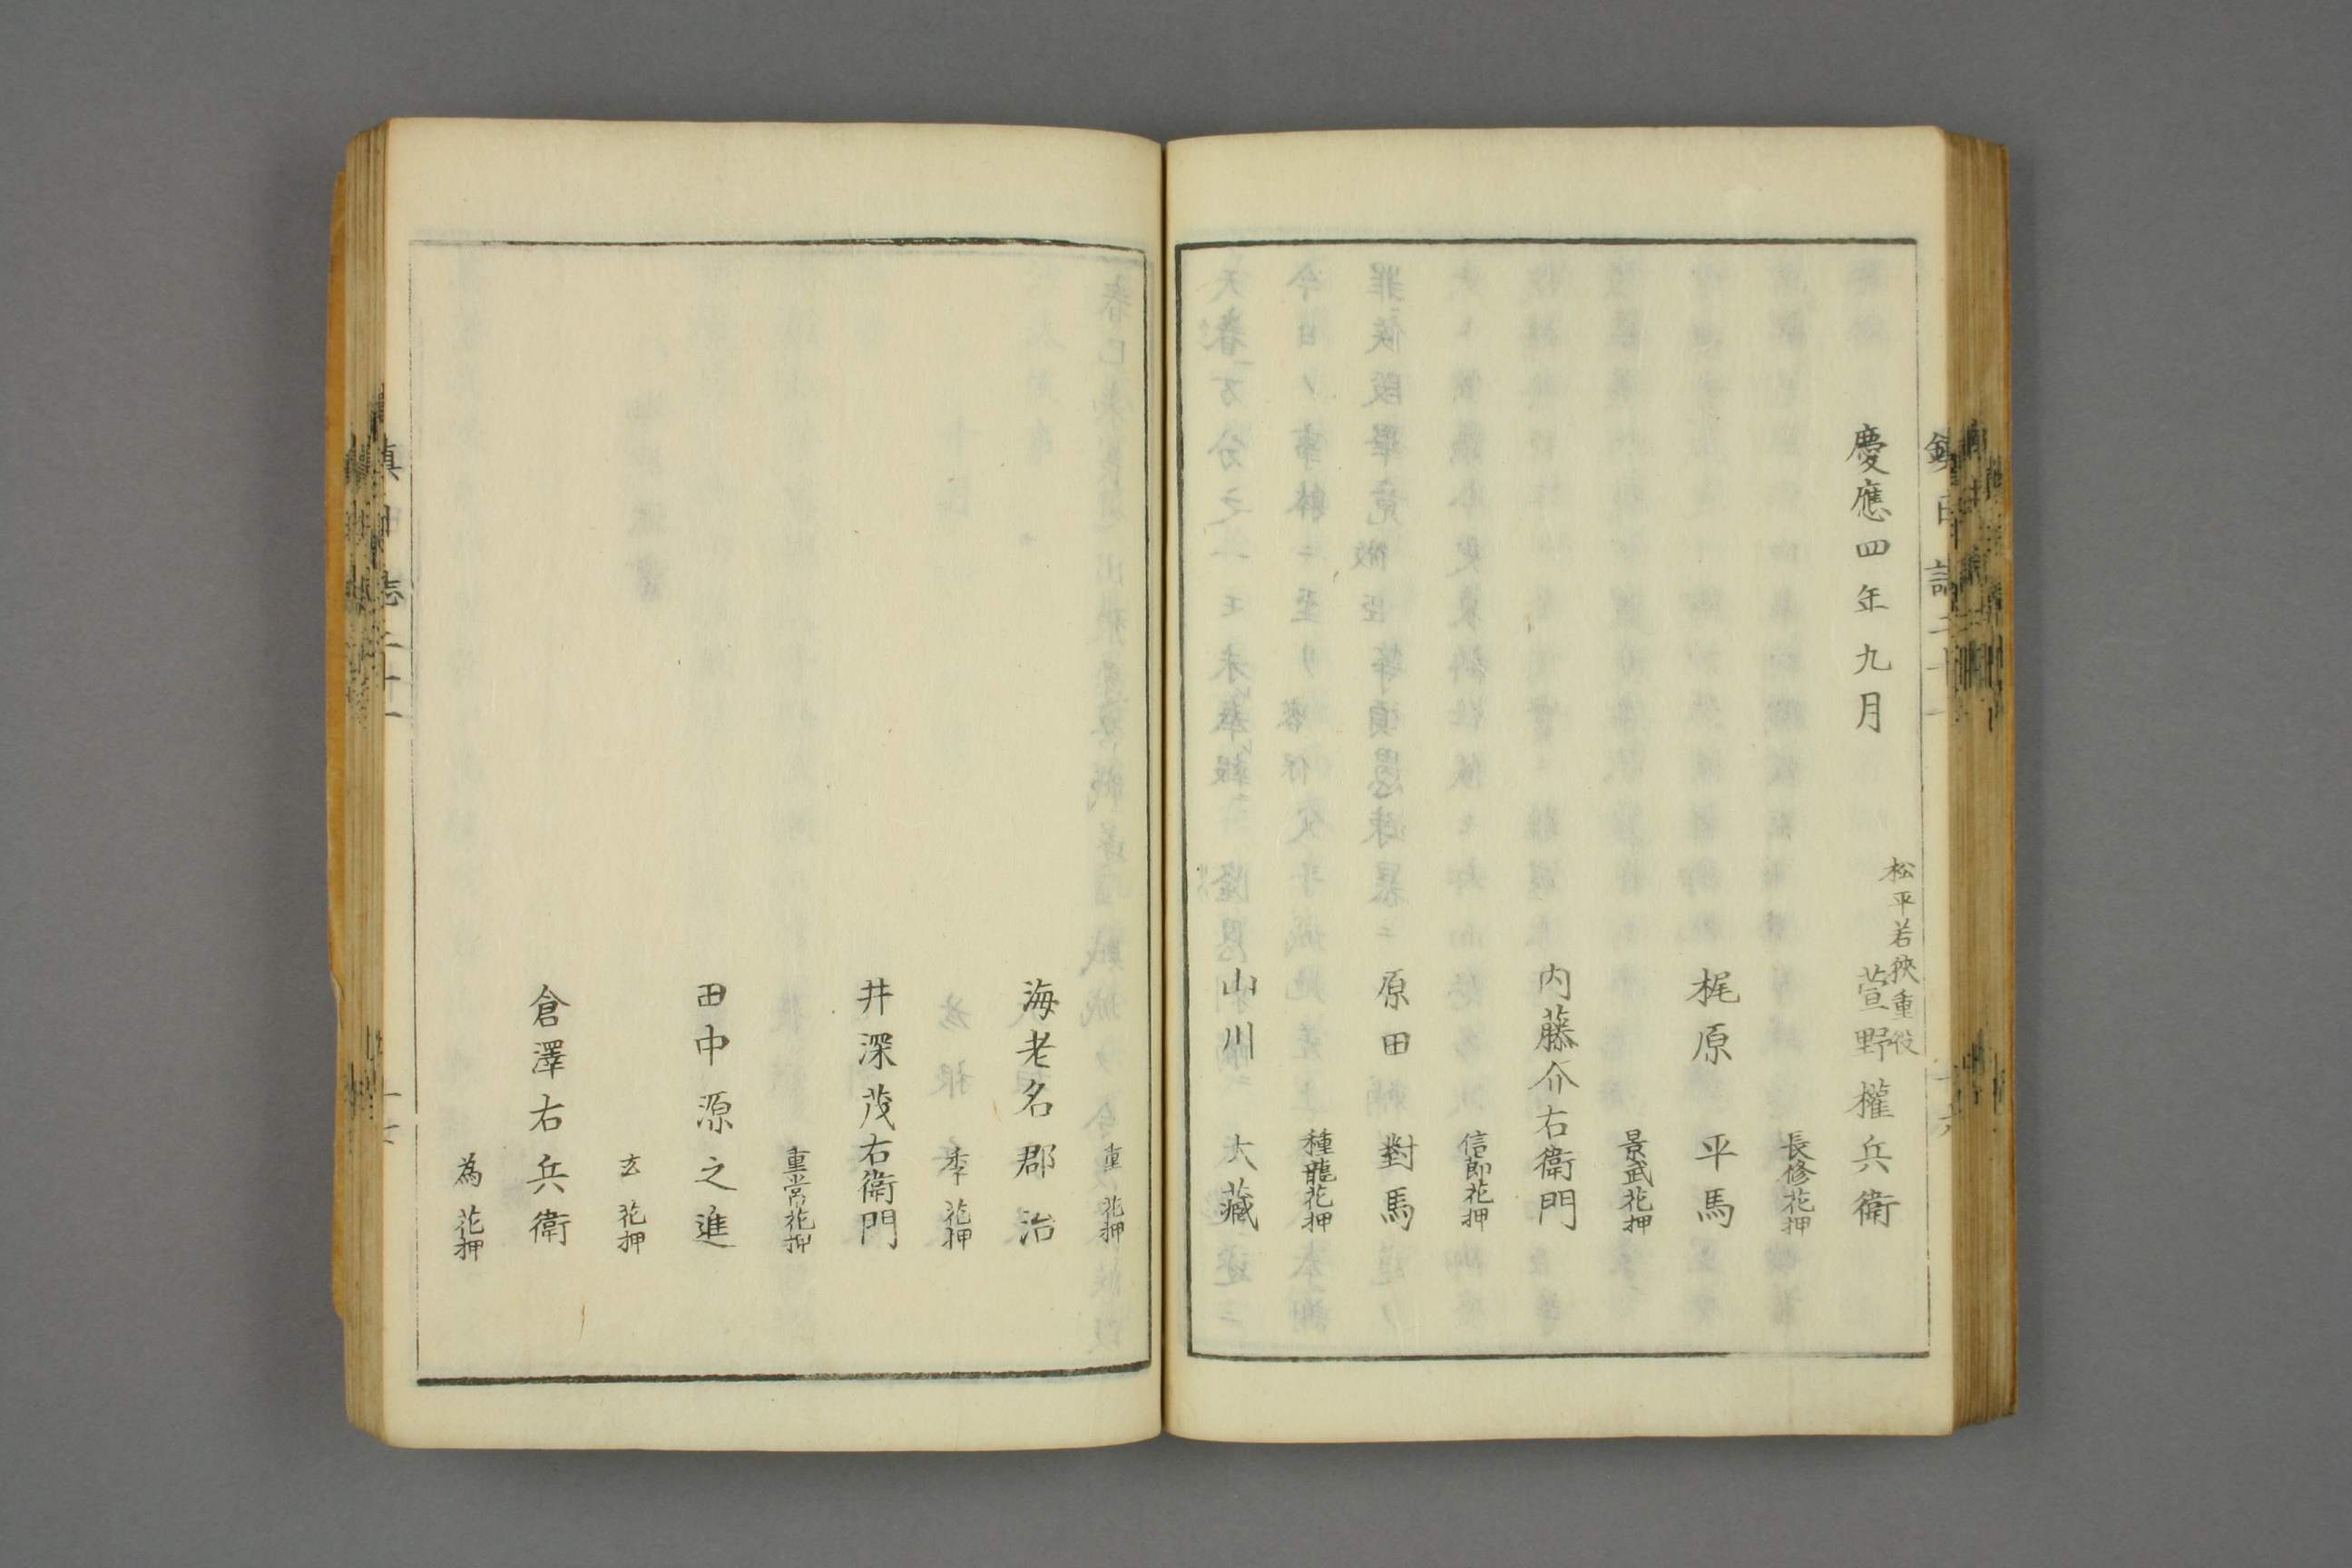 慶應四年九月
松平若狹重役
萱野權兵衛
長修花押
梶原平馬
景武花押
内藤介右衛門
信節花押
原田對馬
種龍花押
山川大藏
重花押
海老名郡治
季花押
井深茂右衛門
重常花押
田中源之進
玄花押
倉澤右兵衛
為花押